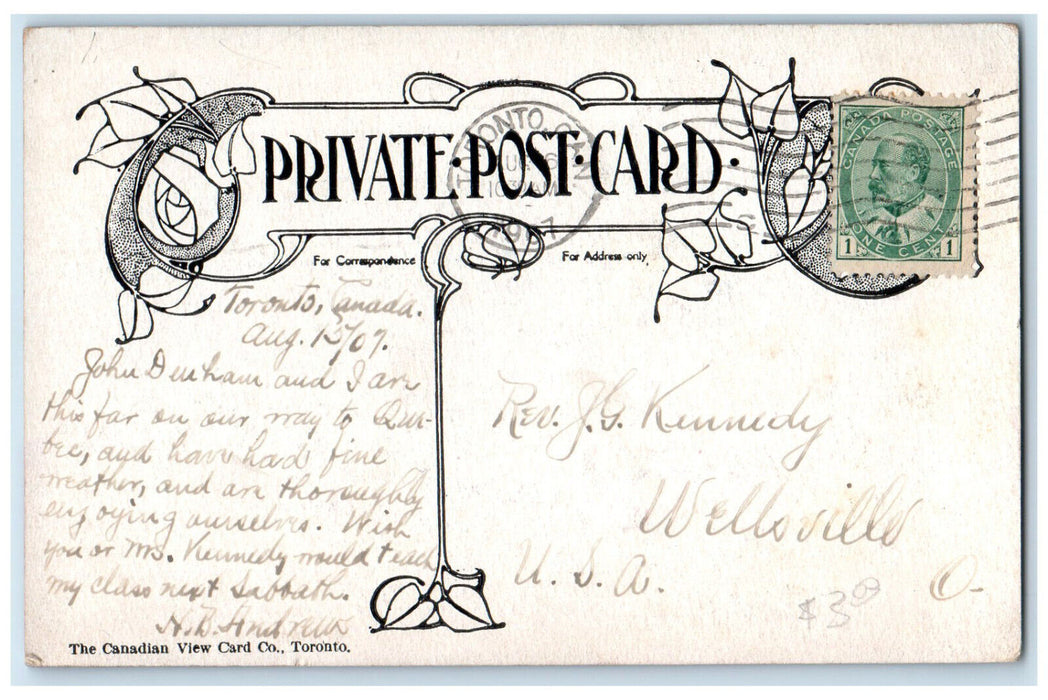 PRIVATE·POST·CARD·
TORONTO, CAN.
AUG 16
10 AM
1907
CANADA POSTAGE
1 ONE CENT 1
For Correspondence
For Address only
Toronto, Canada.
Aug. 15/07.
John Denham and I are
this far on our way to Que-
bec, and have had fine
weather, and are thoroughly
enjoying ourselves. Wish
you or Mrs. Kennedy would teach
my class next Sabbath.
H.B. Andrews
Rev. J.G. Kennedy
Wellsville
U. S. A. O.
$3.00
The Canadian View Card Co., Toronto.